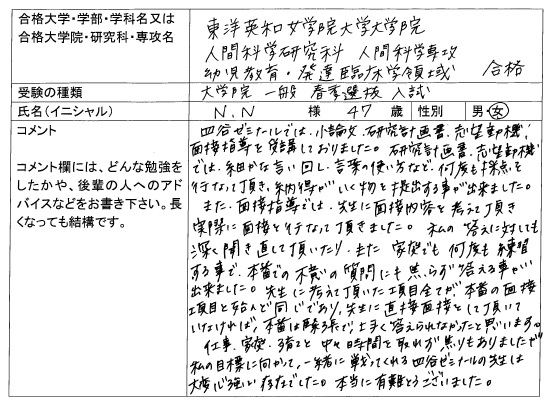 合格大学・学部・学科名又は
合格大学院・研究科・専攻名
東洋英和女学院大学大学院
人間科学研究科 人間科学専攻
幼児教育・発達臨床学領域 合格
受験の種類
大学院 一般 春季選抜 入試
氏名(イニシャル)
N.N 様 47 歳 性別 男・女
コメント
コメント欄には、どんな勉強を
したかや、後輩の人へのアド
バイスなどをお書き下さい。長
くなっても結構です。
四谷ゼミナールでは、小論文、研究計画書、志望動機、
面接指導を受講しておりました。研究計画書、志望動機
では、細かな言い回し、言葉の使い方など、何度も採点を
行なって頂き、納得がいく物を提出する事が出来ました。
また、面接指導では、先生に面接内容を考えて頂き
実際に面接を行なって頂きました。私の答えに対しても
深く聞き直して頂いたり、また家族でも何度も練習
する事で、本番での不意の質問にも焦らず答える事が
出来ました。先生に考えて頂いた項目全てが、本番の面接
項目と殆んど同じであり、先生に直接面接をして頂いて
いなければ、本番は緊張で、上手く答えられなかったと思います。
仕事、家庭、子育てと中々時間を取れず焦りもありましたが
私の目標に向かって、一緒に戦ってくれる四谷ゼミナールの先生は
大変心強い存在でした。本当に有難とうございました。